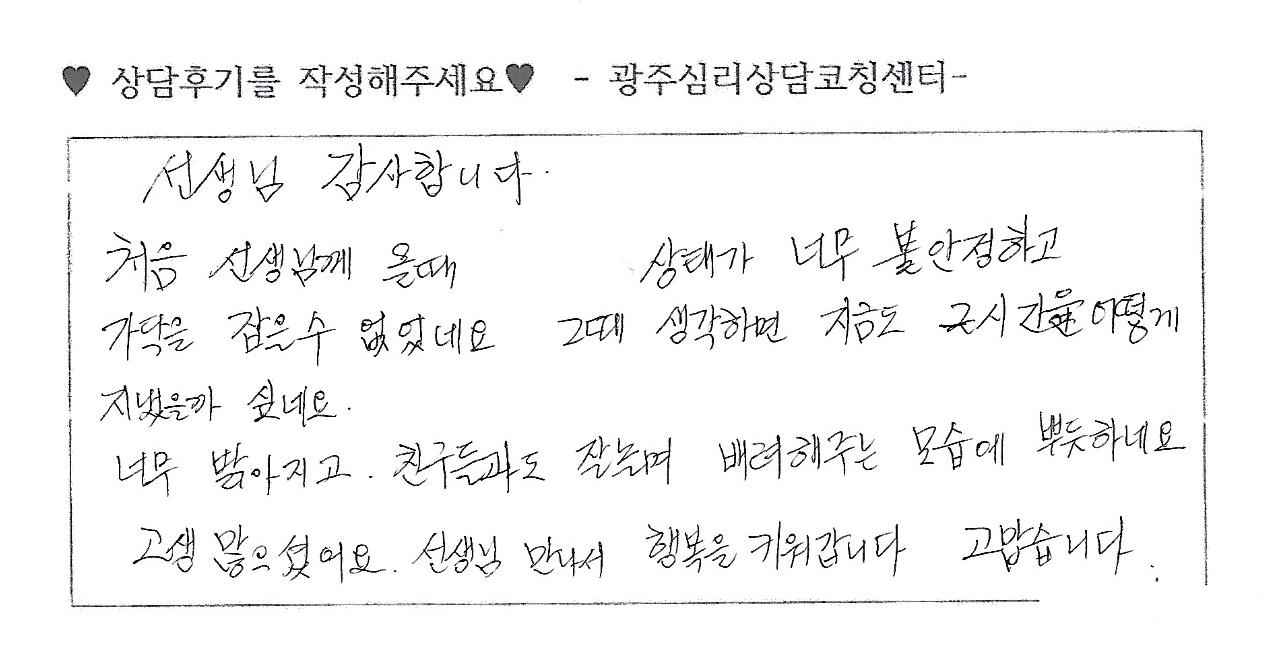 ♥ 상담후기를 작성해주세요♥ - 광주심리상담코칭센터-
선생님 감사합니다.
처음 선생님께 올때 상태가 너무 불안정하고
가닥을 잡을수 없었네요 그때 생각하면 지금도 그시간을 어떻게
지냈을까 싶네요.
너무 밝아지고. 친구들과도 잘놀며 배려해주는 모습에 뿌듯하네요
고생 많으셨어요. 선생님 만나서 행복을 키워갑니다 고맙습니다.